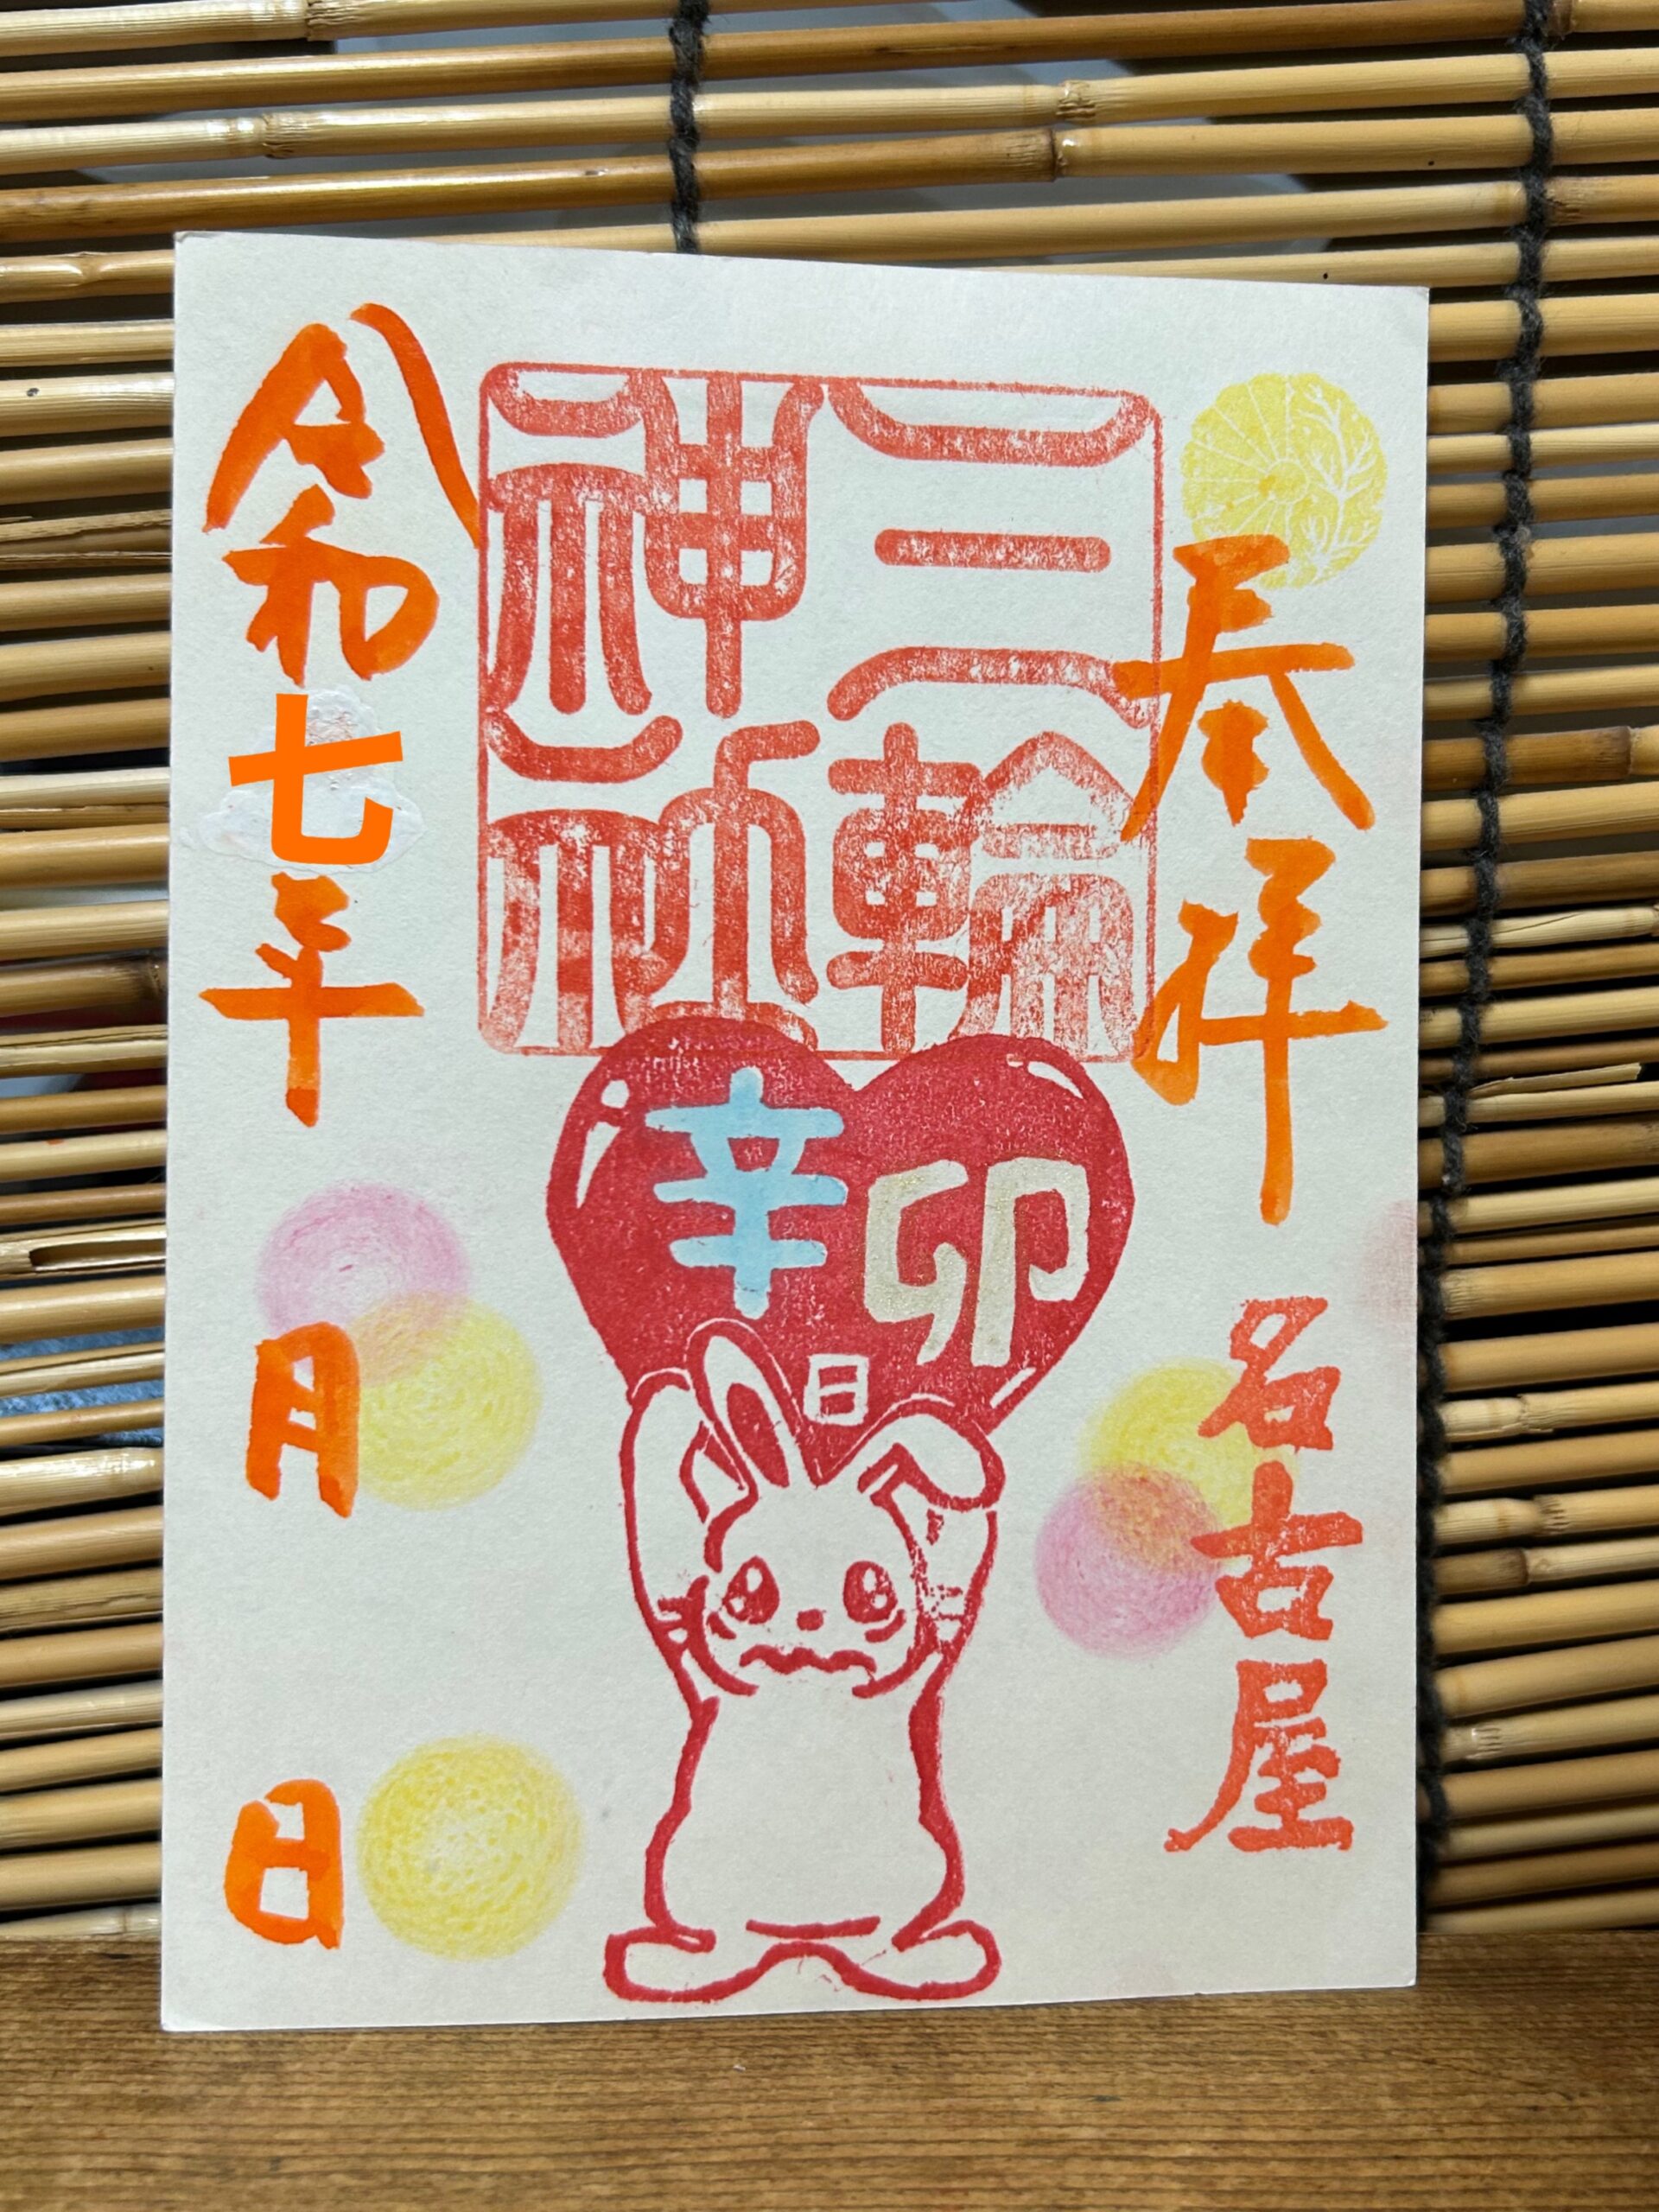 奉拝
名古屋
三輪
神社
辛卯
日
令和七年
月
日